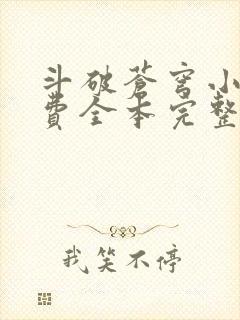 斗破苍穹小
费全本完整
我笑不停